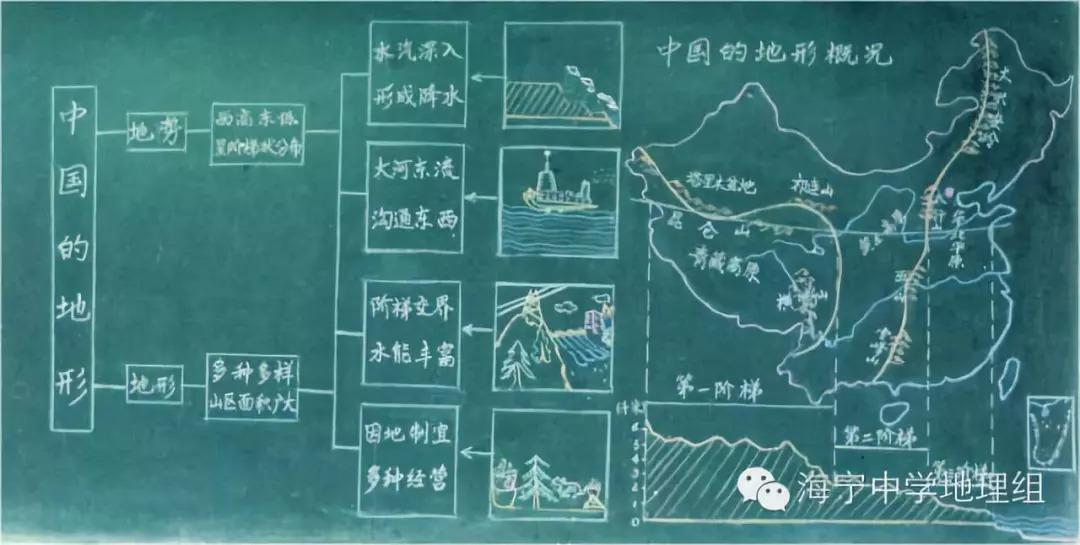 中国的地形
地势
西高东低
呈阶梯状分布
地形
多种多样
山区面积广大
水汽深入
形成降水
大河东流
沟通东西
阶梯交界
水能丰富
因地制宜
多种经营
中国的地形概况
大兴安岭
塔里木盆地
祁连山
昆仑山
青藏高原
横断山
太行
华北平原
巫山
第一阶梯
第二阶梯
第三阶梯
千米
6
5
4
3
2
1
0
海宁中学地理组